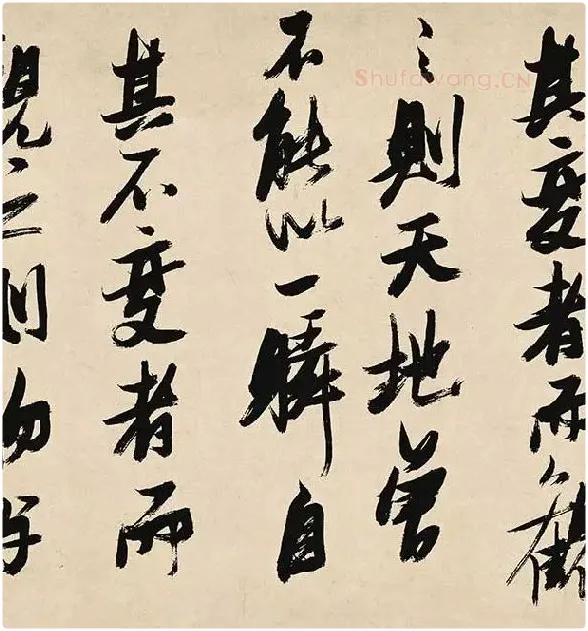 其變者而觀
之則天地曾
不能以一瞬自
其不變者而
觀之則物
Shufawang.CN